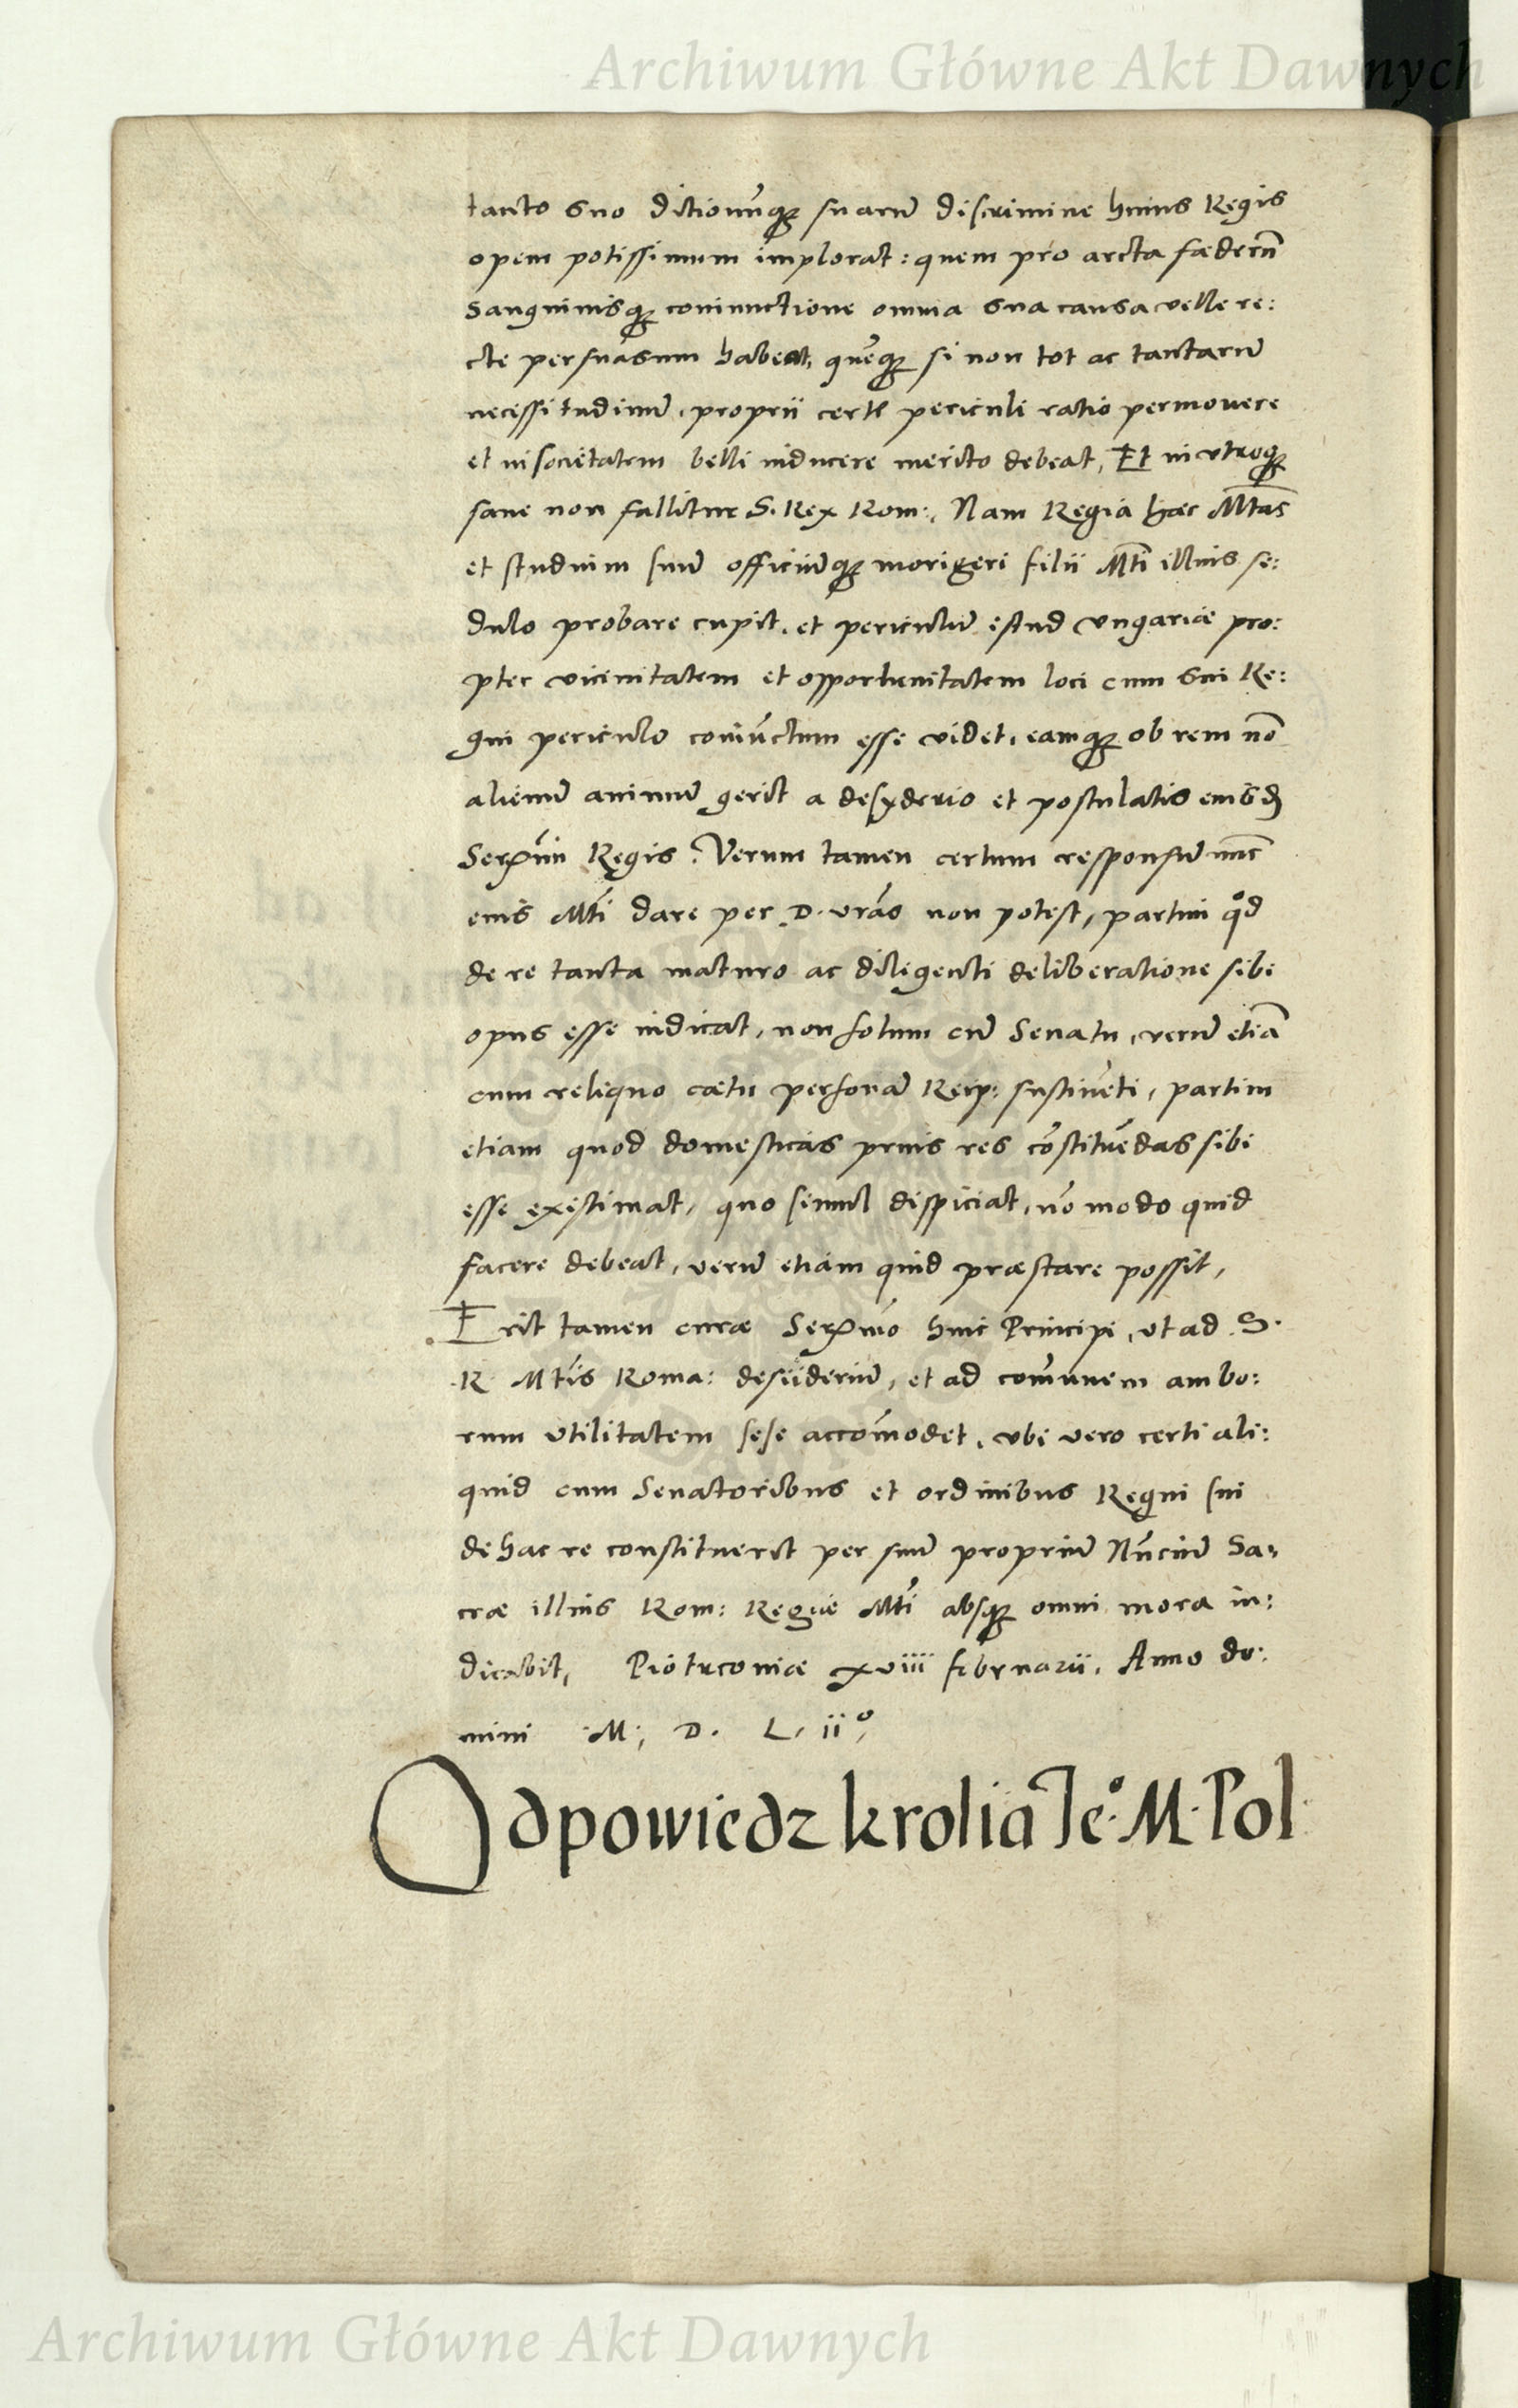 Archiwum Główne Akt Dawnych
tanto suo ditionūqꝫ suarū discrimine huius Regis
opem potissimum implorat: quem pro arcta fæderū
sanguinisqꝫ coniunctione omnia sua causa velle re:
cte persuasum habeat, quēqꝫ si non tot ac tantarū
necessitudinū, proprii certe periculi ratio permouere
et in societatem belli inducere merito debeat, Et in vtroqꝫ
sane non fallitur S. Rex Rom:, Nam Regia hæc Mtās
et studium suū officiūqꝫ morigeri filii Mtī illius se:
dulo probare cupit, et periculū istud Vngariæ pro:
pter vicinitatem et opportunitatem loci cum sui Re:
gni periculo coniūctum esse videt, eamqꝫ ob rem nō
alienū animū gerit a desyderio et postulatis eiusd
Serᵐi Regis. Verum tamen certum responsū nūc
eius Mtī dare per D. vrās non potest, partim qͦd
de re tanta maturo ac diligenti deliberatione sibi
opus esse iudicat, non solum cū Senatu, verū etiā
cum reliquo cætu personā Reip: sustinēti, partim
etiam quod domesticas prius res cōstituēdas sibi
esse existimat, quo simul dispiciat, nō modo quid
facere debeat, verū etiam quid præstare possit,
Erit tamen curæ Serᵐo huic Principi, vt ad S.
R. Mtīs Roma: desiiderium, et ad comūnem ambo:
rum vtilitatem sese accōmodet, vbi vero certi ali:
quid cum Senatoribus et ordinibus Regni sui
de hac re constituerit per suū propriū Nūciū Sa,
cræ illius Rom: Regiæ Mtī absqꝫ omni mora in:
dicabit, Piotrconiæ xviiii februarii. Anno do:
mini M, D. L, iiͦ,
Odpowiedz krolia Ieͦ. M. Pol
Archiwum Główne Akt Dawnych